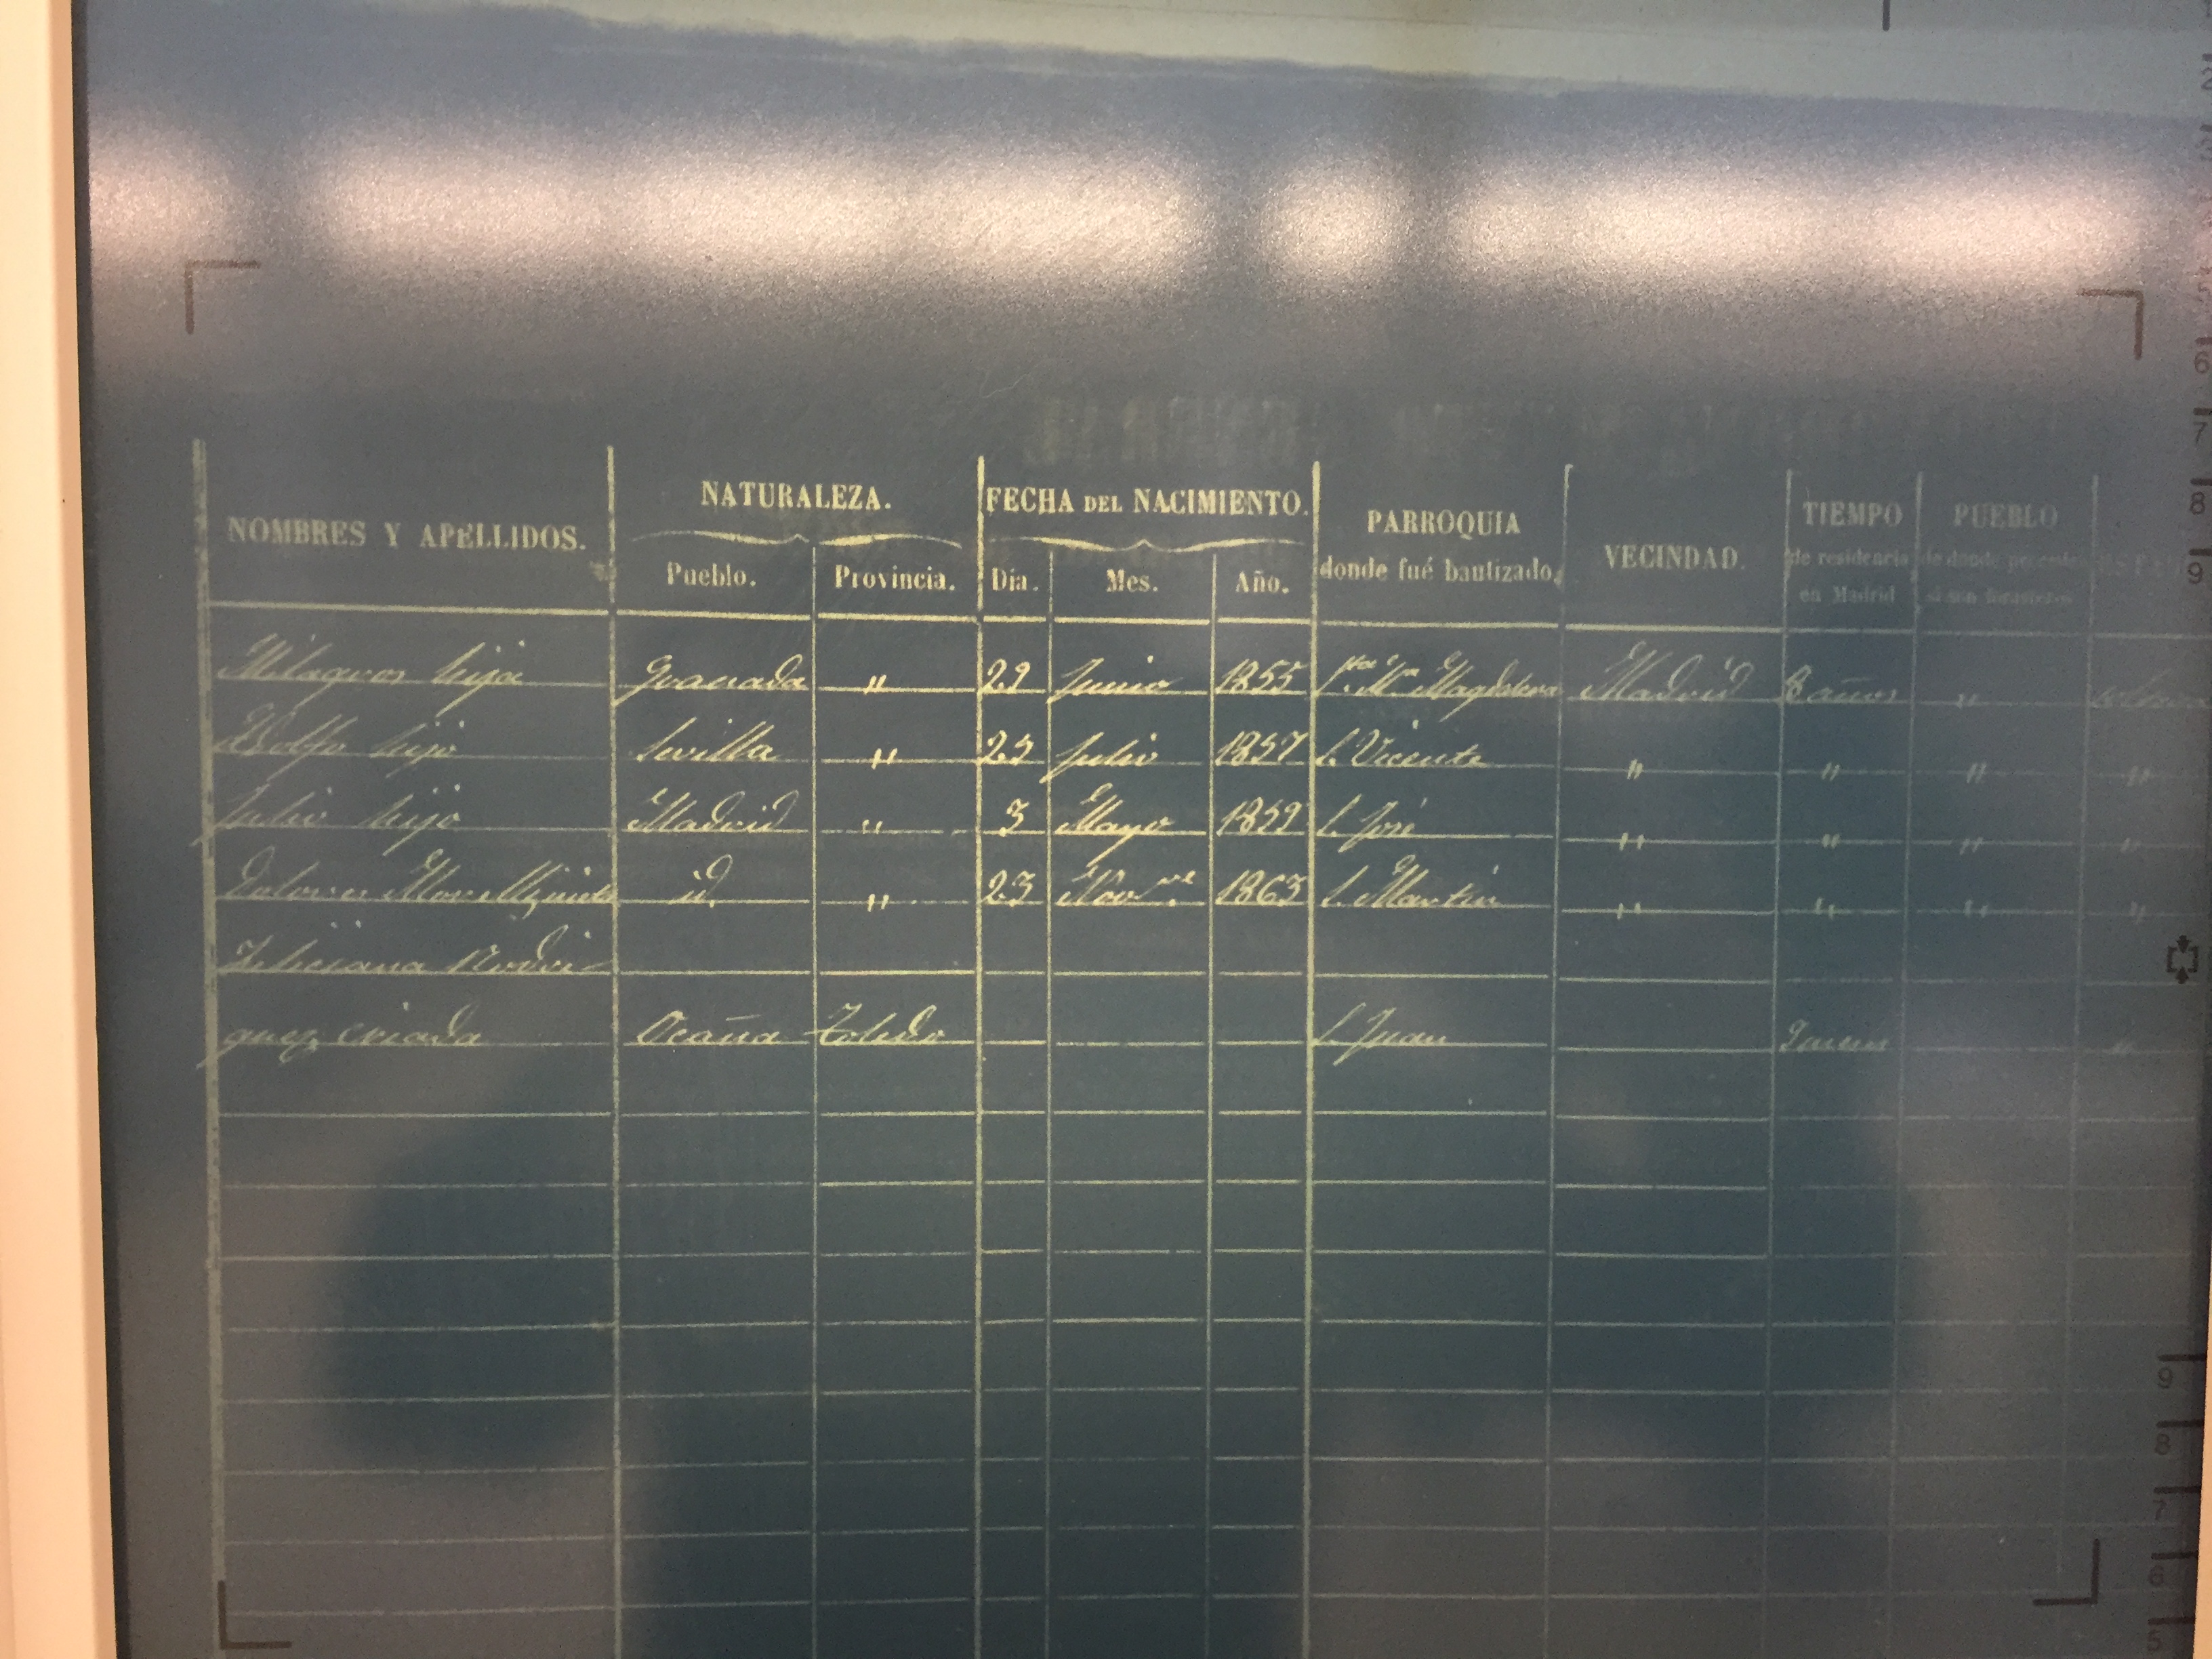 NATURALEZA. FECHA DEL NACIMIENTO. PARROQUIA TIEMPO PUEBLO
NOMBRES Y APELLIDOS. VECINDAD.
Pueblo. Provincia. Dia. Mes. Año. donde fué bautizado, de residencia de donde proceden
en Madrid si son forasteros
Milagros hija Granada " 29 Junio 1855 Sta. Ma. Magdalena Madrid 8 años "
Adolfo hijo Sevilla " 25 Julio 1857 S. Vicente " " " "
Julio hijo Madrid " 3 Mayo 1859 S. José " " " "
Dolores id. " 23 Nov.re 1863 S. Martin " " " "
Feliciana Rodri-
guez criada Ocaña Toledo S. Juan "
6
7
8
9
9
8
7
6
5